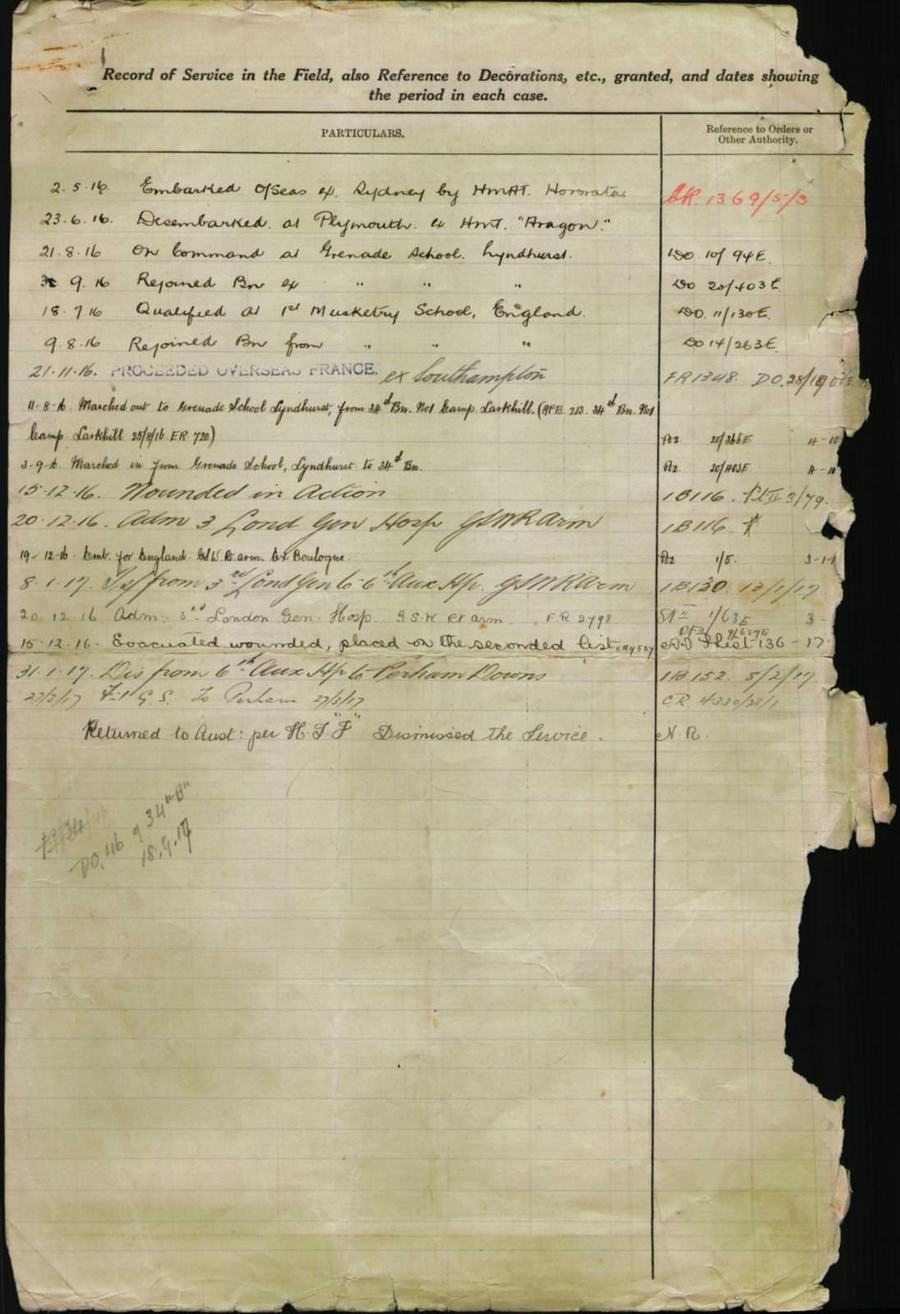 Record of Service in the Field, also Reference to Decorations, etc., granted, and dates showing
the period in each case.
PARTICULARS.
Reference to Orders or
Other Authority.
2.5.16. Embarked O/Seas ex. Sydney by HMAT. Hororata
23.6.16. Disembarked. at Plymouth. ex Hmt. "Aragon."
21.8.16 On Command at Grenade School. Lyndhurst. DO 10/94E.
9.16 Rejoined Bn ex " " " DO 20/403E
18.7.16 Qualified at 1st Musketry School, England. DO. 11/130E.
9.8.16 Rejoined Bn from " " " DO 14/263E.
21.11.16. PROCEEDED OVERSEAS FRANCE. ex Southampton FR1348. DO.
11-8-16 Marched out to Grenade School Lyndhurst, from 34th Bn. No1 Camp. Larkhill. (AFB. 213. 34th Bn. No1
Camp Larkhill 25/8/16. ER 720) 20/266E
3-9-16. Marched in from Grenade School, Lyndhurst to 34th Bn. 20/403E
15.12.16. Wounded in Action 1B116. 3/79.
20.12.16. Adm 3 Lond Gen Hosp GSW R Arm 1B116.
19-12-16 Emb. for England GSW R. arm. Ex Boulogne. 1/5.
8.1.17. Tsf from 3rd Lond Gen to 6th Aux Hp. GSW R Arm 1B130 13/1/17
20.12.16 Adm. 3rd London Gen. Hosp. G.S.W. Rt arm. FR 2798 1/63E
15.12.16. Evacuated wounded, placed on the seconded list. List 136 - 17
31.1.17. Dis from 6th Aux Hp to Perham Downs 1B.152. 5/2/17
27/3/17 G.S. To Perham 27/3/17 CR
Returned to Aust: per H.T "F" Dismissed the Service. N.R.
DO, 46 34th "B"
18.9.17